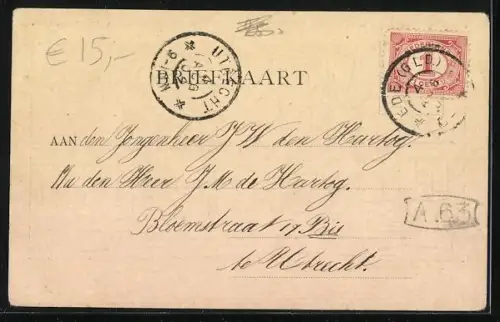 € 15,-
UTRECHT
BRIEFKAART
1
EDE (GLD)
AAN den Jongenheer J W den Hartog.
den Heer J. M. de Hartog.
Bloemstraat 17 Bis
te Utrecht.
A. 63